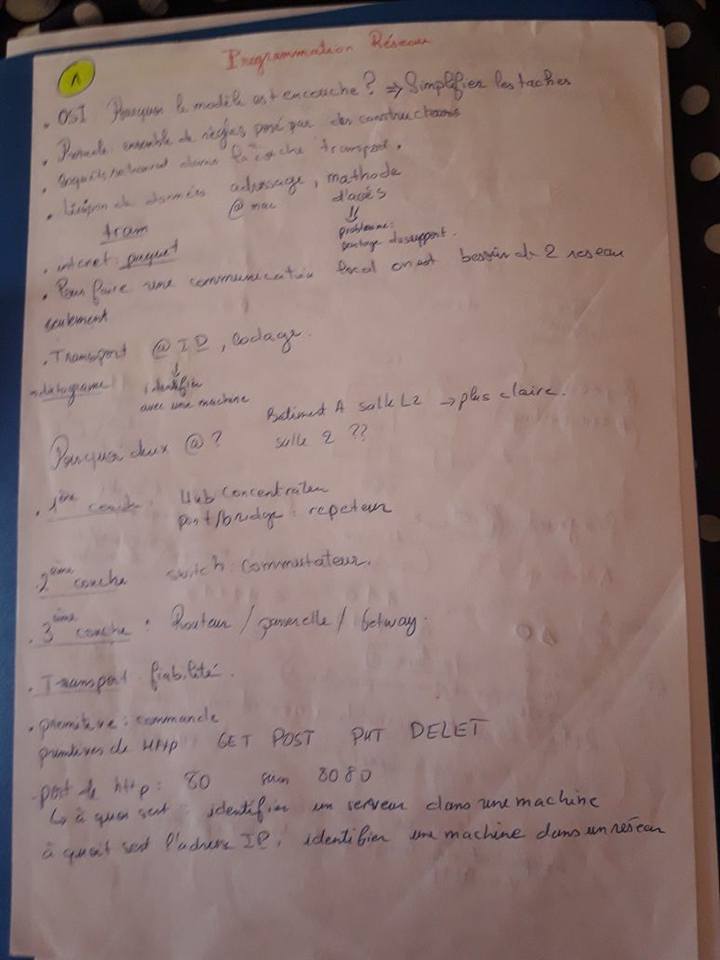 Programmation Réseau
1
. OSI Pourquoi le modèle est en couche ? ⇒ Simplifier les taches
. ensemble de règles posé par des constructeurs
. dans la couche transport.
. Liaison de données adressage, mathode
@ mac d'accés
tram ⇓
problème :
partage du support.
. internet : paquet
. Pour faire une communication local on est besoin de 2 reseau
seulement
. Transport @ IP, codage.
→ datograme ↓
identifier
avec une machine
Batiment A salle L2 → plus claire.
Pourquoi deux @ ? salle 2 ??
. 1ère couche Hub concentrateur
pont/bridge : repeteur
. 2ème couche switch : commutateur.
. 3ème couche : Routeur / passerelle / Getway.
. Transport fiabilité.
. premitive : commande
primitives de http GET POST PUT DELET
. port de http : 80 sinon 8080
↳ à quoi sert : identifier un serveur dans une machine
à quoi sert l'adresse IP : identifier une machine dans un réseau